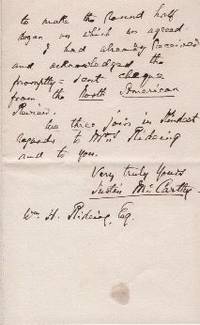 to make the round half
dozen on which we agreed.
I had already received
and acknowledged the
prompt - sent cheque
from the North American
Review.
We three join in kindest
regards to Mrs. Rideing
and to you.
Very truly Yours
Justin McCarthy
Wm. H. Rideing, Esq.